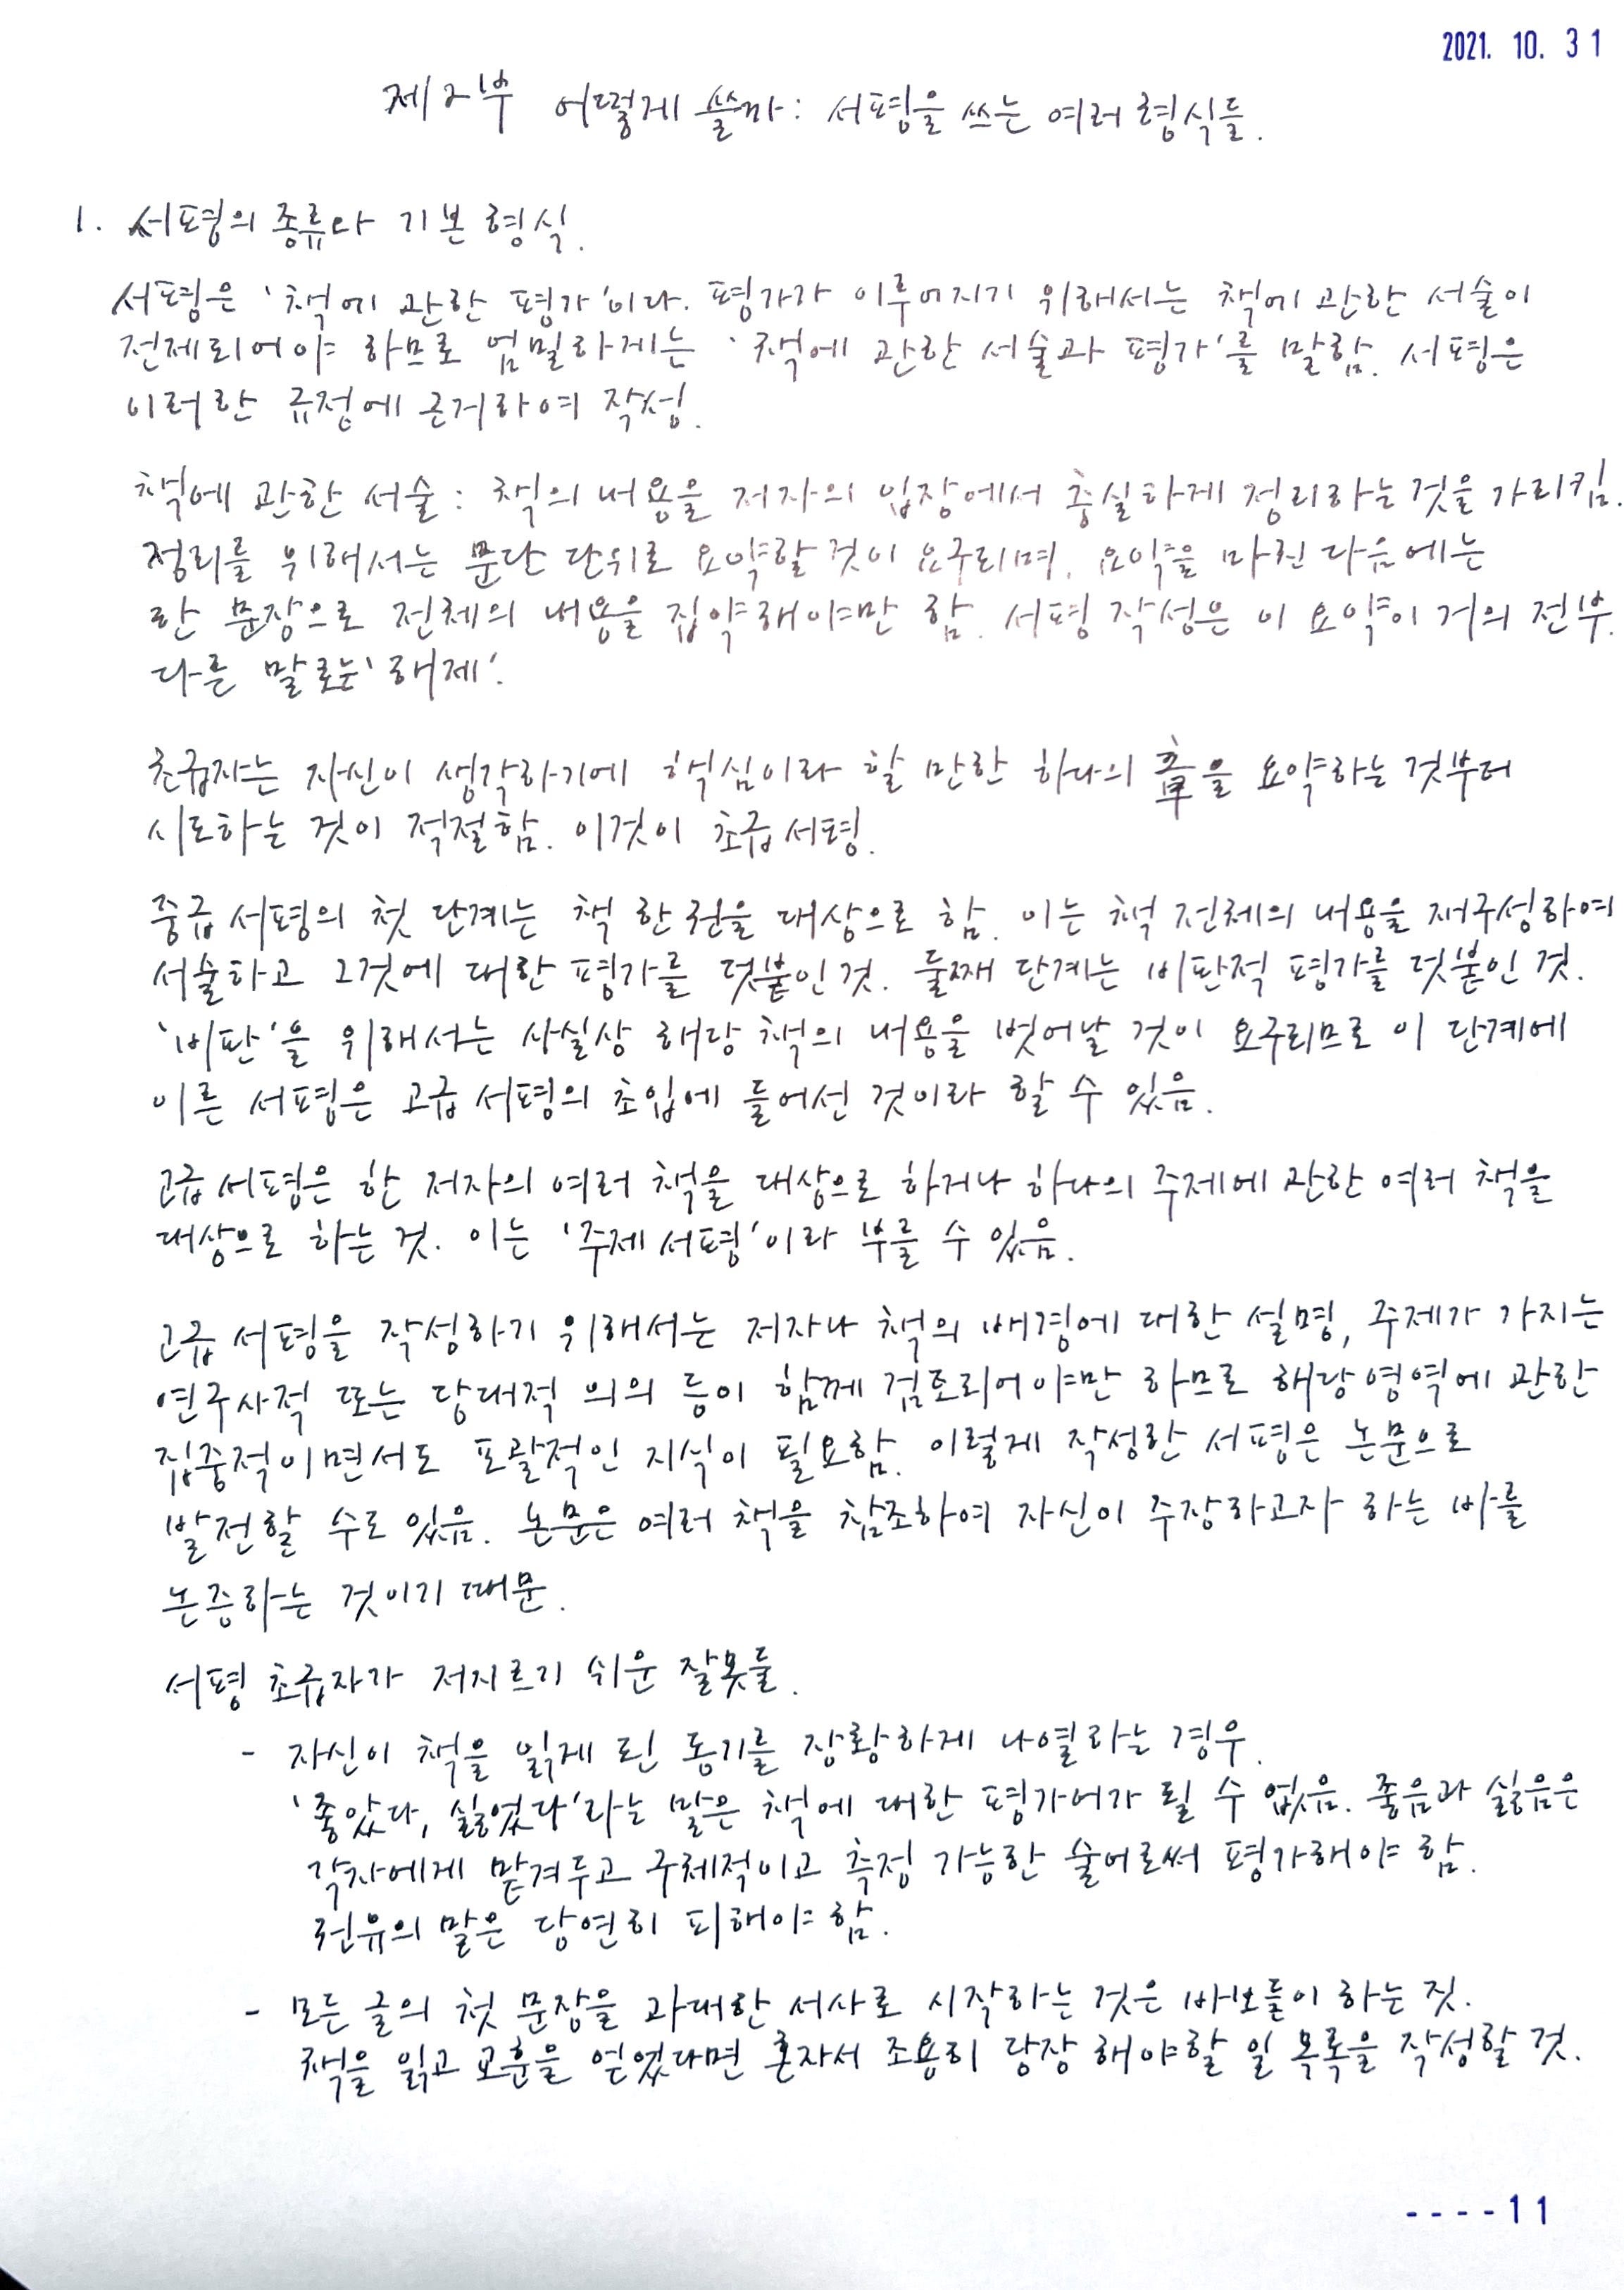 2021. 10. 31
제2부 어떻게 쓸까: 서평을 쓰는 여러 형식들.
1. 서평의 종류와 기본 형식.
서평은 '책에 관한 평가'이다. 평가가 이루어지기 위해서는 책에 관한 서술이
전제되어야 하므로 엄밀하게는 '책에 관한 서술과 평가'를 말함. 서평은
이러한 규정에 근거하여 작성.
책에 관한 서술: 책의 내용을 저자의 입장에서 충실하게 정리하는 것을 가리킴.
정리를 위해서는 문단 단위로 요약할 것이 요구되며, 요약을 마친 다음에는
한 문장으로 전체의 내용을 집약해야만 함. 서평 작성은 이 요약이 거의 전부.
다른 말로는 '해제'.
초급자는 자신이 생각하기에 핵심이라 할 만한 하나의 章을 요약하는 것부터
시도하는 것이 적절함. 이것이 초급 서평.
중급 서평의 첫 단계는 책 한 권을 대상으로 함. 이는 책 전체의 내용을 재구성하여
서술하고 그것에 대한 평가를 덧붙인 것. 둘째 단계는 비판적 평가를 덧붙인 것.
'비판'을 위해서는 사실상 해당 책의 내용을 벗어날 것이 요구되므로 이 단계에
이른 서평은 고급 서평의 초입에 들어선 것이라 할 수 있음.
고급 서평은 한 저자의 여러 책을 대상으로 하거나 하나의 주제에 관한 여러 책을
대상으로 하는 것. 이는 '주제 서평'이라 부를 수 있음.
고급 서평을 작성하기 위해서는 저자나 책의 배경에 대한 설명, 주제가 가지는
연구사적 또는 당대적 의의 등이 함께 검토되어야만 하므로 해당 영역에 관한
집중적이면서도 포괄적인 지식이 필요함. 이렇게 작성한 서평은 논문으로
발전할 수도 있음. 논문은 여러 책을 참조하여 자신이 주장하고자 하는 바를
논증하는 것이기 때문.
서평 초급자가 저지르기 쉬운 잘못들.
- 자신이 책을 읽게 된 동기를 장황하게 나열하는 경우.
'좋았다, 싫었다'라는 말은 책에 대한 평가어가 될 수 없음. 좋음과 싫음은
각자에게 맡겨두고 구체적이고 측정 가능한 술어로써 평가해야 함.
권유의 말은 당연히 피해야 함.
- 모든 글의 첫 문장을 과대한 서사로 시작하는 것은 바보들이 하는 짓.
책을 읽고 교훈을 얻었다면 혼자서 조용히 당장 해야할 일 목록을 작성할 것.
----11